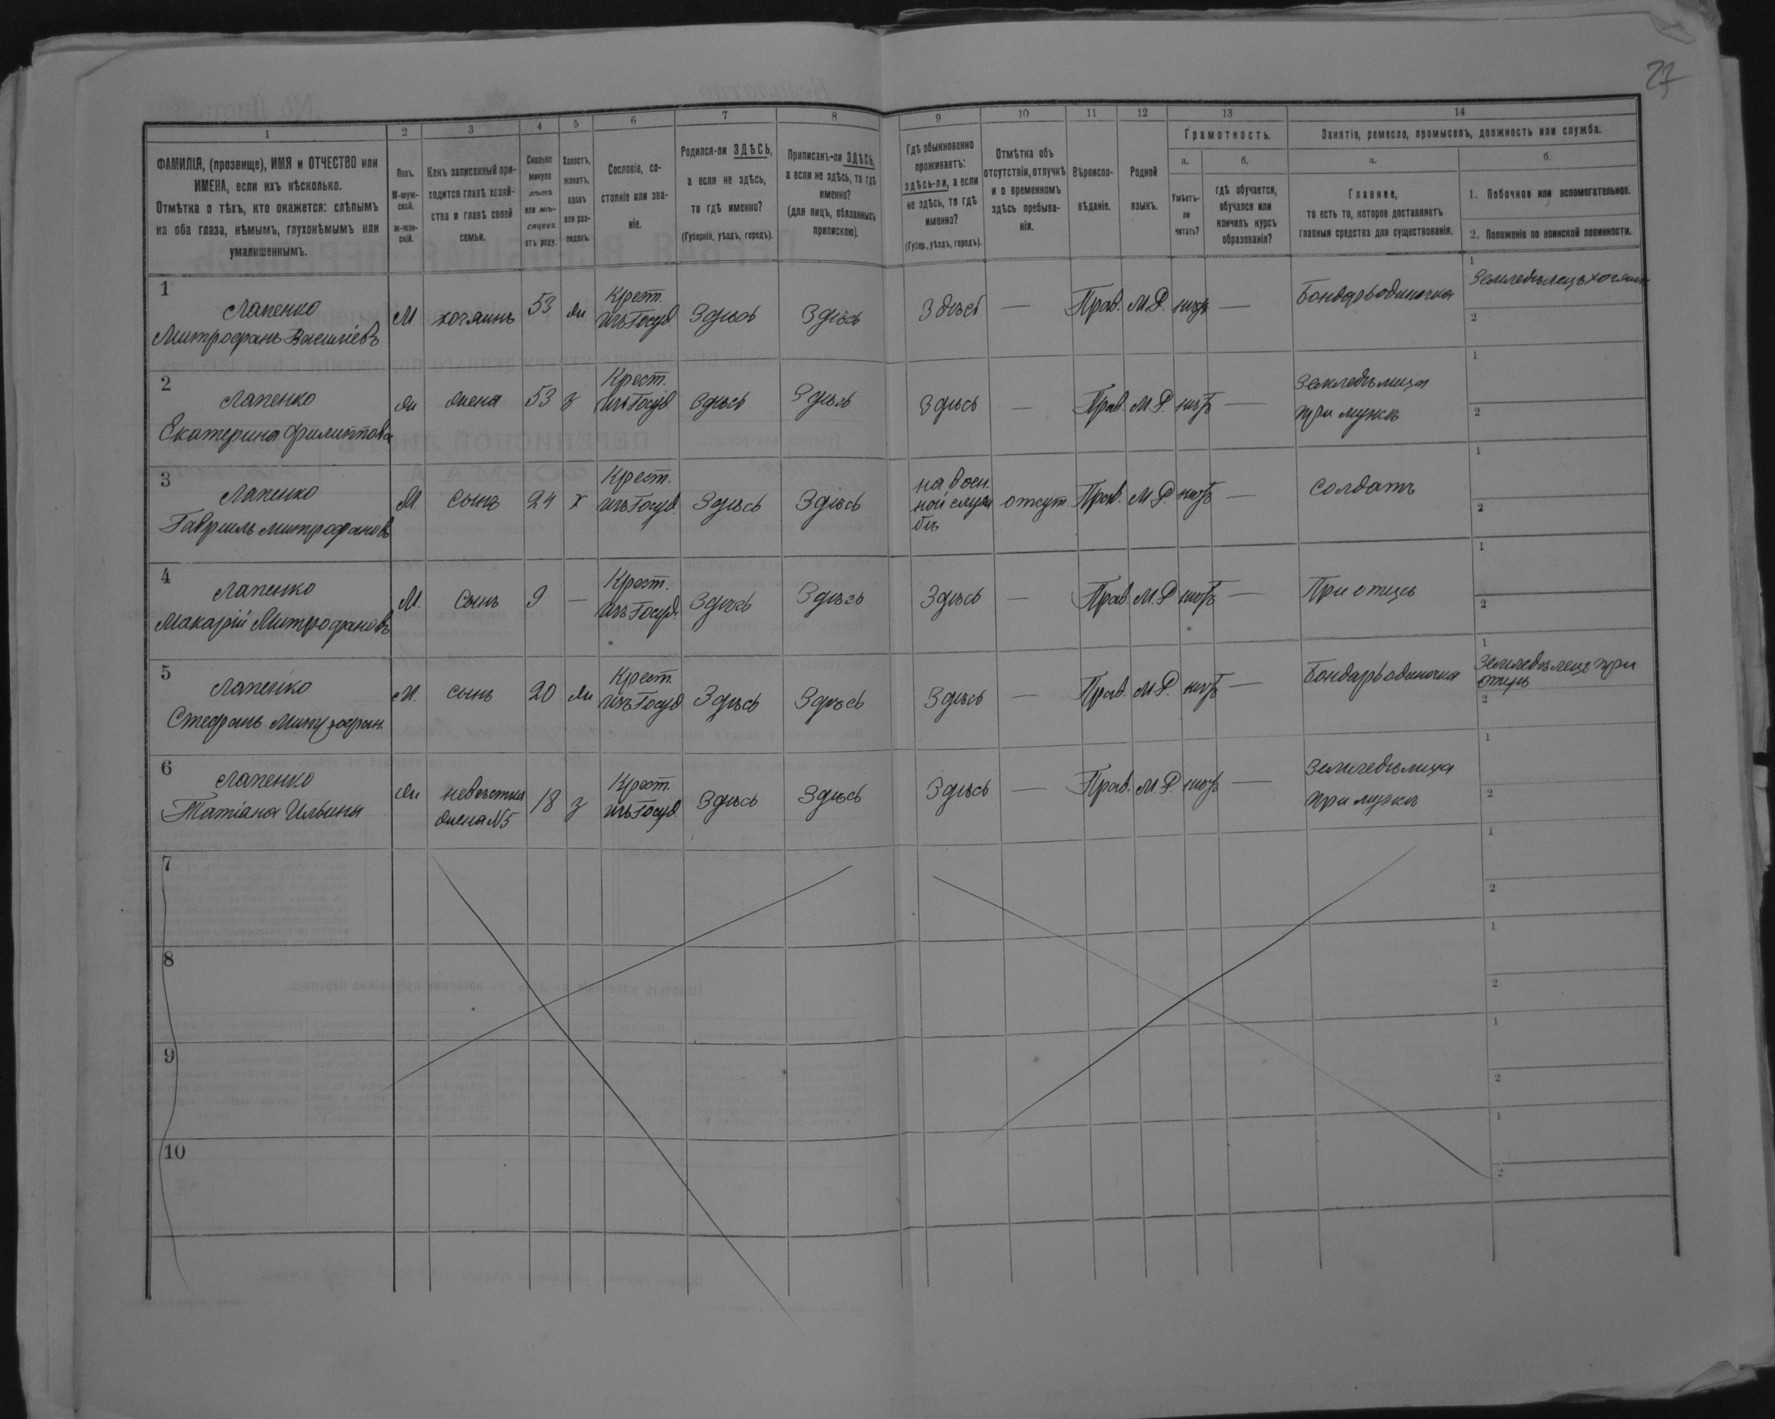 27
1 2 3 4 5 6 7 8 9 10 11 12 13 14
ФАМИЛІЯ, (прозвище), ИМЯ и ОТЧЕСТВО или
ИМЕНА, если ихъ нѣсколько.
Отмѣтка о тѣхъ, кто окажется: слѣпымъ
на оба глаза, нѣмымъ, глухонѣмымъ или
умалишеннымъ.
Полъ.
М-муж-
ской.
ж-жен-
скій.
Какъ записанный при-
ходится главѣ хозяй-
ства и главѣ своей
семьи.
Сколько
минуло
лѣтъ
или мѣ-
сяцевъ
отъ роду.
Холостъ,
женатъ,
вдовъ
или раз-
веденъ.
Сословіе, со-
стояніе или зва-
ніе.
Родился-ли ЗДѢСЬ,
а если не здѣсь,
то гдѣ именно?
(Губернія, уѣздъ, городъ).
Приписанъ-ли ЗДѢСЬ,
а если не здѣсь, то гдѣ
именно?
(для лицъ, обязанныхъ
припискою).
Гдѣ обыкновенно
проживаетъ:
здѣсь-ли, а если
не здѣсь, то гдѣ
именно?
(Губер., уѣздъ, городъ).
Отмѣтка объ
отсутствіи, отлучкѣ
и о временномъ
здѣсь пребыва-
ніи.
Вѣроиспо-
вѣданіе.
Родной
языкъ.
Грамотность.
а.
Умѣетъ-
ли
читать?
б.
гдѣ обучается,
обучался или
кончилъ курсъ
образованія?
Занятіе, ремесло, промыселъ, должность или служба.
а.
Главное,
то есть то, которое доставляетъ
главныя средства для существованія.
б.
1. Побочное или вспомогательное.
2. Положеніе по воинской повинности.
1
Лапенко
Митрофанъ Васильевъ
М хозяинъ 53 ж
Крест.
изъ Госуд.
Здѣсь Здѣсь Здѣсь — Прав. М.Р. нѣтъ — Бондарь одиночка
1 Земледѣлецъ хозяинъ
2
2
Лапенко
Екатерина Филиппова
ж жена 53 з
Крест.
изъ Госуд
Здѣсь Здѣсь Здѣсь — Прав. М.Р. нѣтъ —
Земледѣлица
при мужѣ
1
2
3
Лапенко
Гавріилъ Митрофановъ
М сынъ 24 х
Крест.
изъ Госуд.
Здѣсь Здѣсь
на воен-
ной служ
бѣ
отсут. Прав. М.Р. нѣтъ — солдатъ
1
2
4
Лапенко
Макарій Митрофановъ
М. сынъ 9 —
Крест.
изъ Госуд.
Здѣсь Здѣсь Здѣсь — Прав. М.Р. нѣтъ — При отцѣ
1
2
5
Лапенко
Стефанъ Митрофан.
М. сынъ 20 ж
Крест.
изъ Госуд.
Здѣсь Здѣсь Здѣсь — Прав. М.Р. нѣтъ — Бондарь одиночка
1 Земледѣлецъ при
отцѣ
2
6
Лапенко
Татіана Ильина
ж
невѣстка
жена №5
18 з
Крест.
изъ Госуд.
Здѣсь Здѣсь Здѣсь — Прав. М.Р. нѣтъ —
Земледѣлица
при мужѣ
1
2
7
1
2
8
1
2
9
1
2
10
1
2